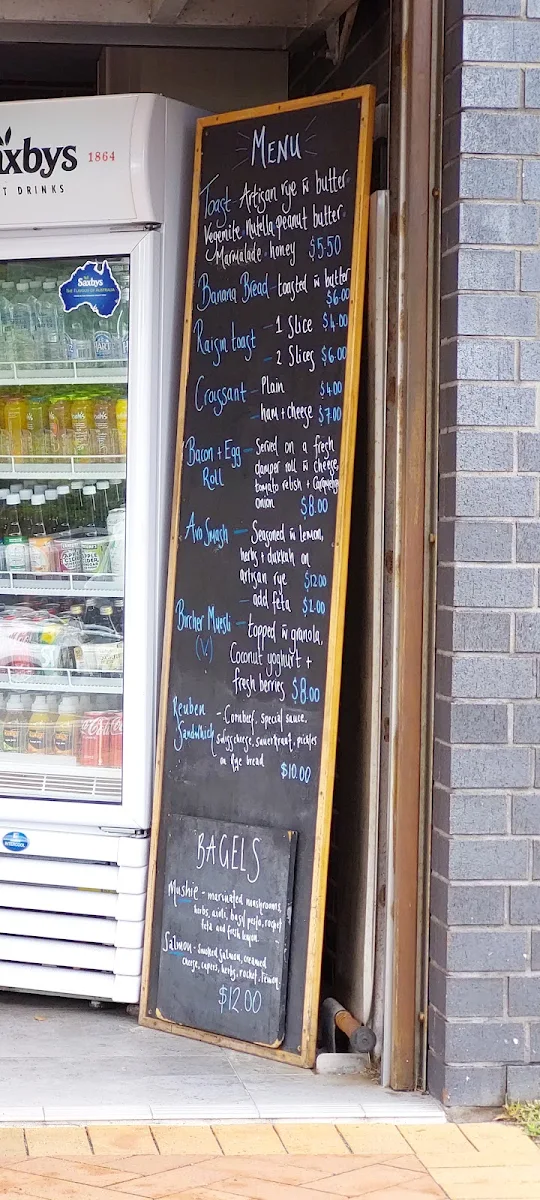 axbys 1864
T DRINKS
Saxbys
MENU
Toast - Artisan rye w̄ butter
Vegemite Nutella peanut butter
Marmalade honey $5.50
Banana Bread - toasted w̄ butter
$6.00
Raisin toast - 1 Slice $4.00
- 2 Slices $6.00
Croissant - Plain $4.00
- ham + cheese $7.00
Bacon + Egg - Served on a fresh
Roll damper roll w̄ cheese,
tomato relish + Caramelised
onion $8.00
Avo Smash - Seasoned w̄ lemon,
herbs + dukkah on
artisan rye $12.00
- add feta $1.00
Bircher Muesli - topped w̄ granola,
(V) Coconut yoghurt +
fresh berries $8.00
Reuben - Cornbeef, special sauce,
Sandwich swiss cheese, sauerkraut, pickles
on Rye bread
$10.00
BAGELS
Mushie - marinated mushrooms,
herbs, aioli, basil pesto, rocket
feta and fresh lemon
Salmon - Smoked salmon, creamed
cheese, capers, herbs, rocket, lemon,
$12.00